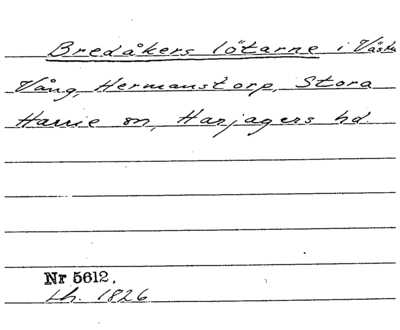 Bredåkers lötarne i Väster
Vång, Hermanstorp, Stora
Harrie sn, Harjagers hd.
Nr 5612.
Lh. 1826